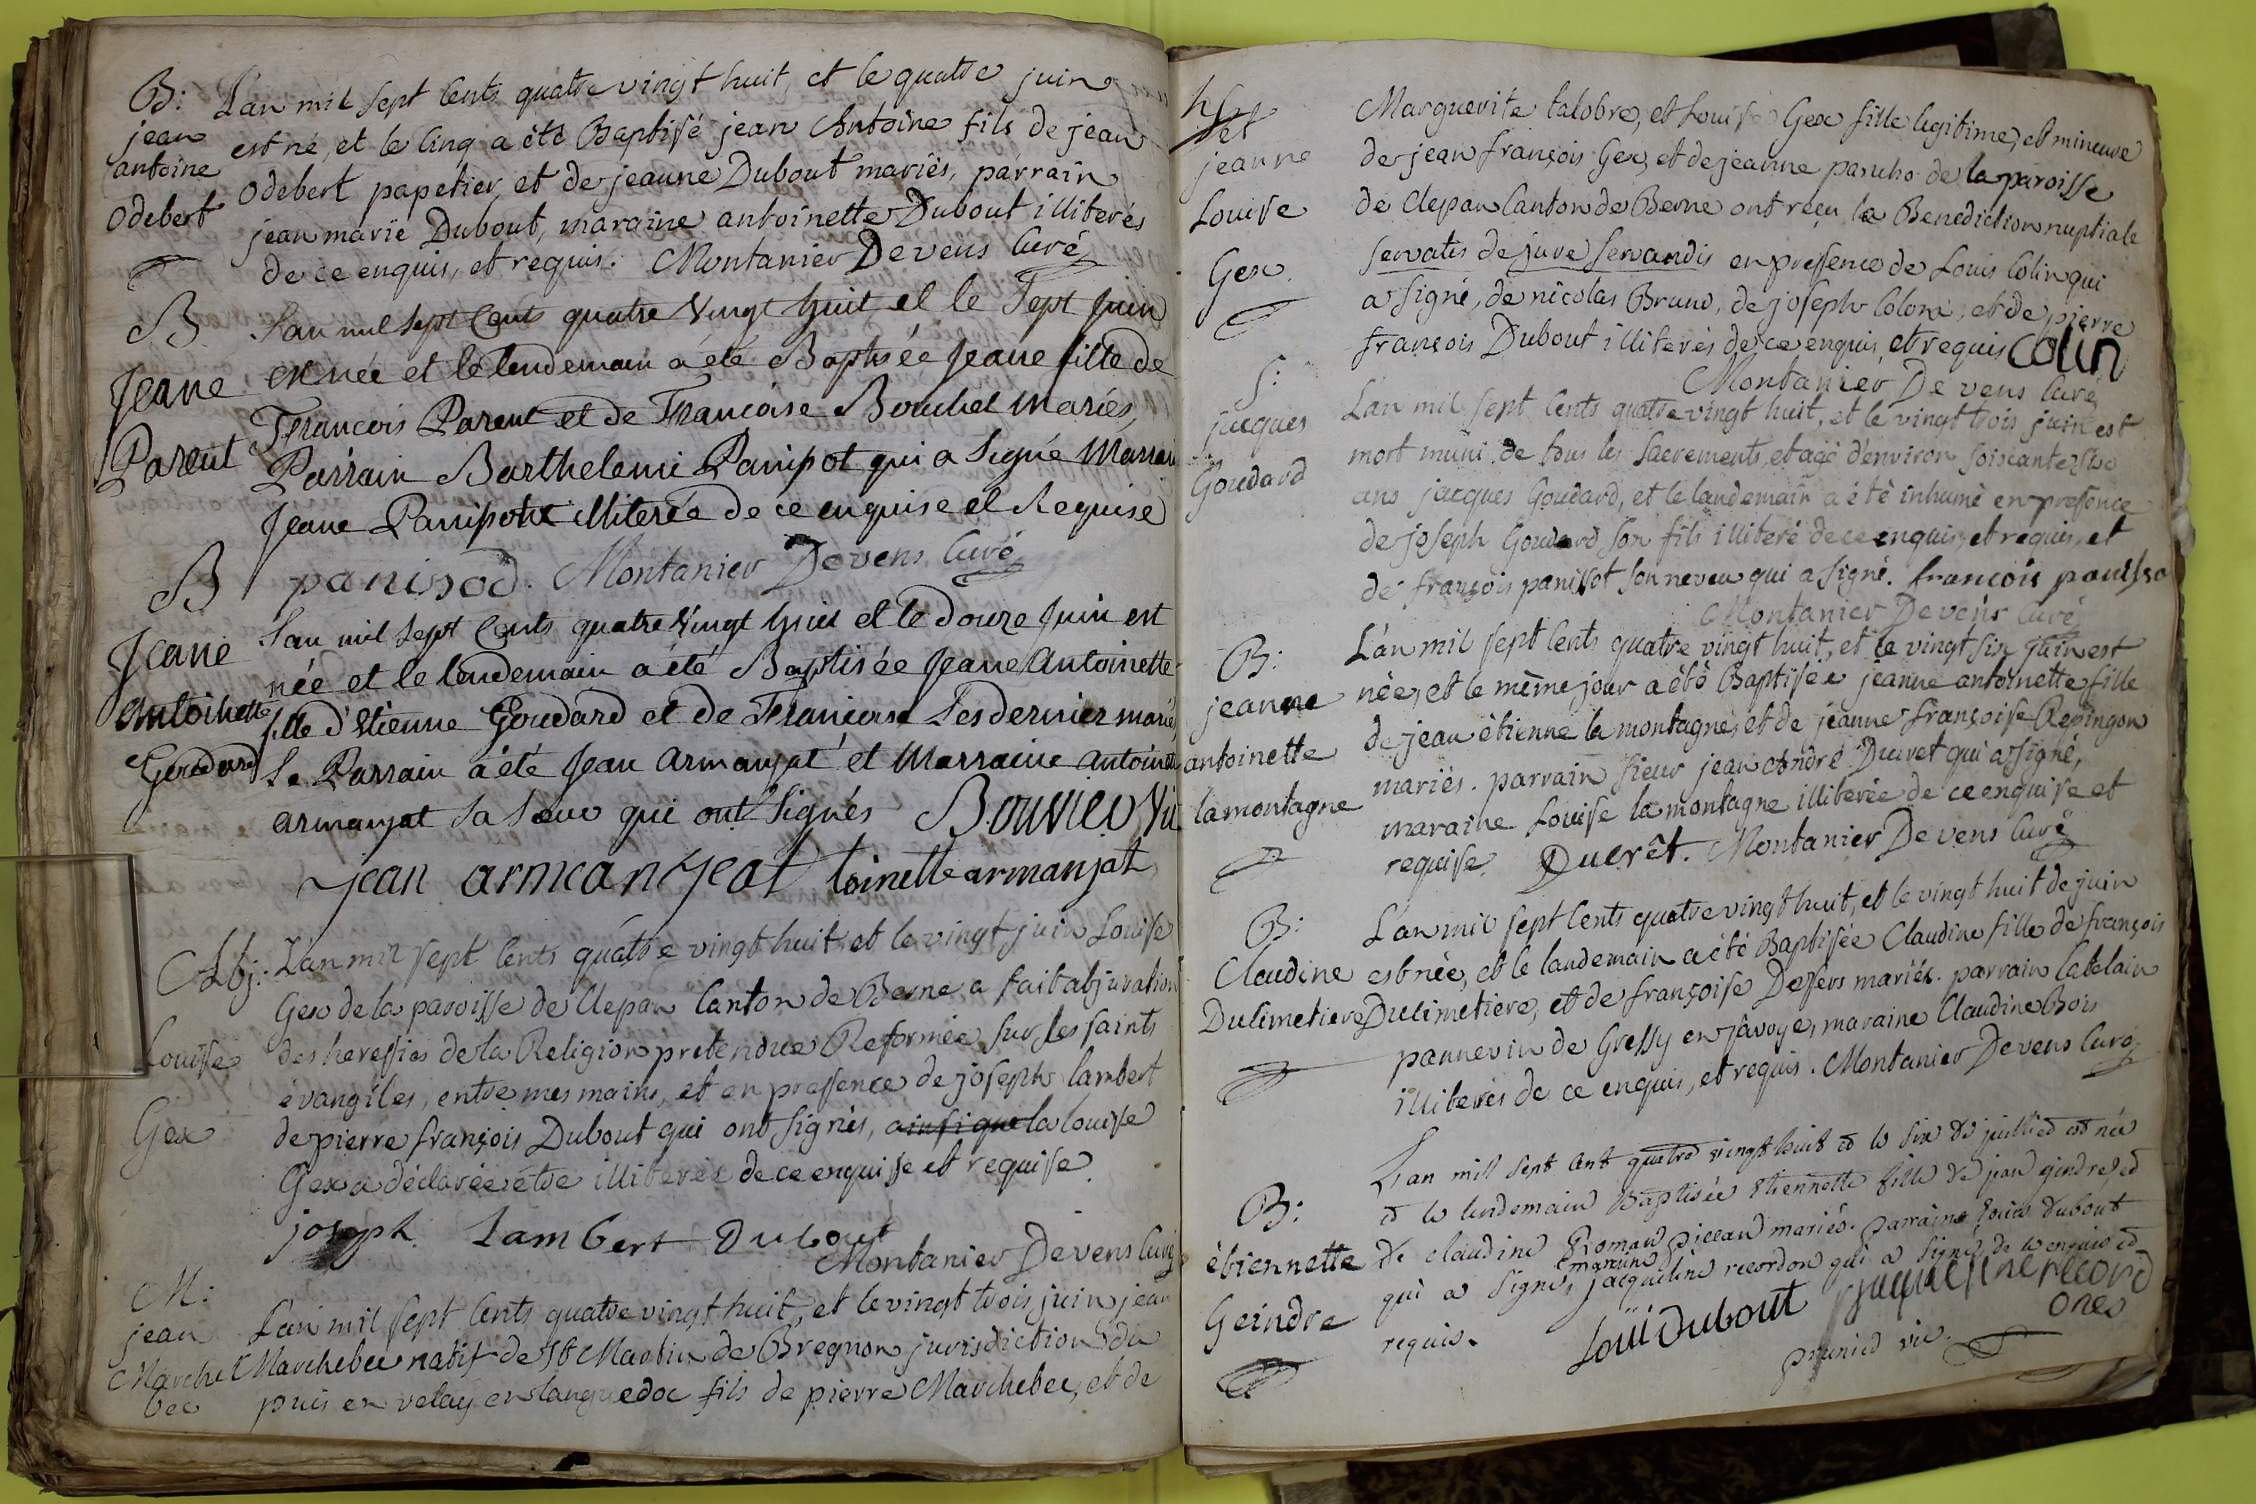 B: L'an mil sept cents quatre vingt huit, et le quatre juin
jean est né, et le cinq a été Baptisé jean Antoine fils de jean
antoine Odebert papetier, et de jeanne Dubout mariés, parrain
Odebert jean marie Dubout, maraine antoinette Dubout illiterés
de ce enquis, et requis. Montanier Devens Curé
B L'an mil sept Cents quatre Vingt huit et le Sept Juin
est née et le lendemain a été Baptisée Jeane fille de
Jeane Francois Parent et de Francoise Bouchet mariés,
Parent Parrain Barthelemi Panipot qui a Signé Marrai
Jeane Panipote illiterée de ce enquise et Requise
panisod. Montanier Devens Curé
B L'an mil Sept Cents quatre Vingt huit et le Douze Juin est
Jeane née et le lendemain a été Baptisée Jeane Antoinette
Antoinette fille d'Etienne Goudard et de Francoise Lesdernier mariés
Goudard Le Parrain a été Jean armanjat et Marraine antoinett
armanjat sa Soeur qui ont Signés Bouvier Vic
jean armcanjeat toinette armanjat
Abj: L'an mil sept cents quatre vingt huit et le vingt juin Louise
Gex de la paroisse de Clepan Canton de Berne a fait abjuration
Louise des heressies de la Religion pretendue Reformée sur les saints
évangiles, entre mes mains, et en pressence de joseph lambert
Gex de pierre françois Dubout qui ont signés, ainsi que la louise
Gex a déclarée étre illiterée de ce enquise et requise.
joseph Lambert Dubout
Montanier Devens Curé
M: L'an mil sept cents quatre vingt huit, et le vingt trois juin jean
jean Marchebec natif de St Martin de Bregnon jurisdiction du
Marchebec puis en velay en languedoc fils de pierre Marchebec, et de
et Marguerite talobre, et Louise Gex fille legitime, et mineure
jeanne de jean françois Gex, et de jeanne pancho de la paroisse
Louise de Clepan Canton de Berne ont reçu la Benediction nuptiale
Gex. servatis de jure servandis en pressence de Louis Colin qui
a signé, de nicolas Bruno, de joseph Colom, et de pierre
françois Dubout illiterés de ce enquis, et requis Colin
Montanier Devens Curé
S: L'an mil sept cents quatre vingt huit, et le vingt trois juin est
jacques mort muni de tous les sacrements, et agé d'environ soixante six
Goudard ans jacques Goudard, et le landemain a été inhumé en pressence
de joseph Goudard son fils illiteré de ce enquis, et requis, et
de françois panissot son neveu qui a signé. francois panisso
Montanier Devens Curé
B: L'an mil sept cents quatre vingt huit, et le vingt six juin est
jeanne née, et le même jour a été Baptisée jeanne antoinette fille
antoinette de jean étienne la montagne, et de jeanne françoise Repingon
mariés. parrain sieur jean André Ducret qui a signé,
lamontagne maraine Louise la montagne illiterée de ce enquise et
requise. Ducrêt. Montanier Devens Curé
B: L'an mil sept cents quatre vingt huit, et le vingt huit de juin
Claudine est née, et le landemain a été Baptisée Claudine fille de françois
Dulimetiere Dulimetiere, et de françoise Defers mariés. parrain Catelain
pannevin de Gressy en savoye, maraine Claudine Bois
illiterés de ce enquis, et requis. Montanier Devens Curé
L'an mill sept cent quatre vingt huit et le six de juilliet est née
B: et le lendemain Baptisée Etiennette fille de jean gindre, et
étiennette de claudine proman piccan mariés. parraine Louis dubout
Geindre qui a signé, maraine jacqueline recordon qui a signé de ce enquis et
requis. Loui Dubout jaquueline record
ones
prunied vic.